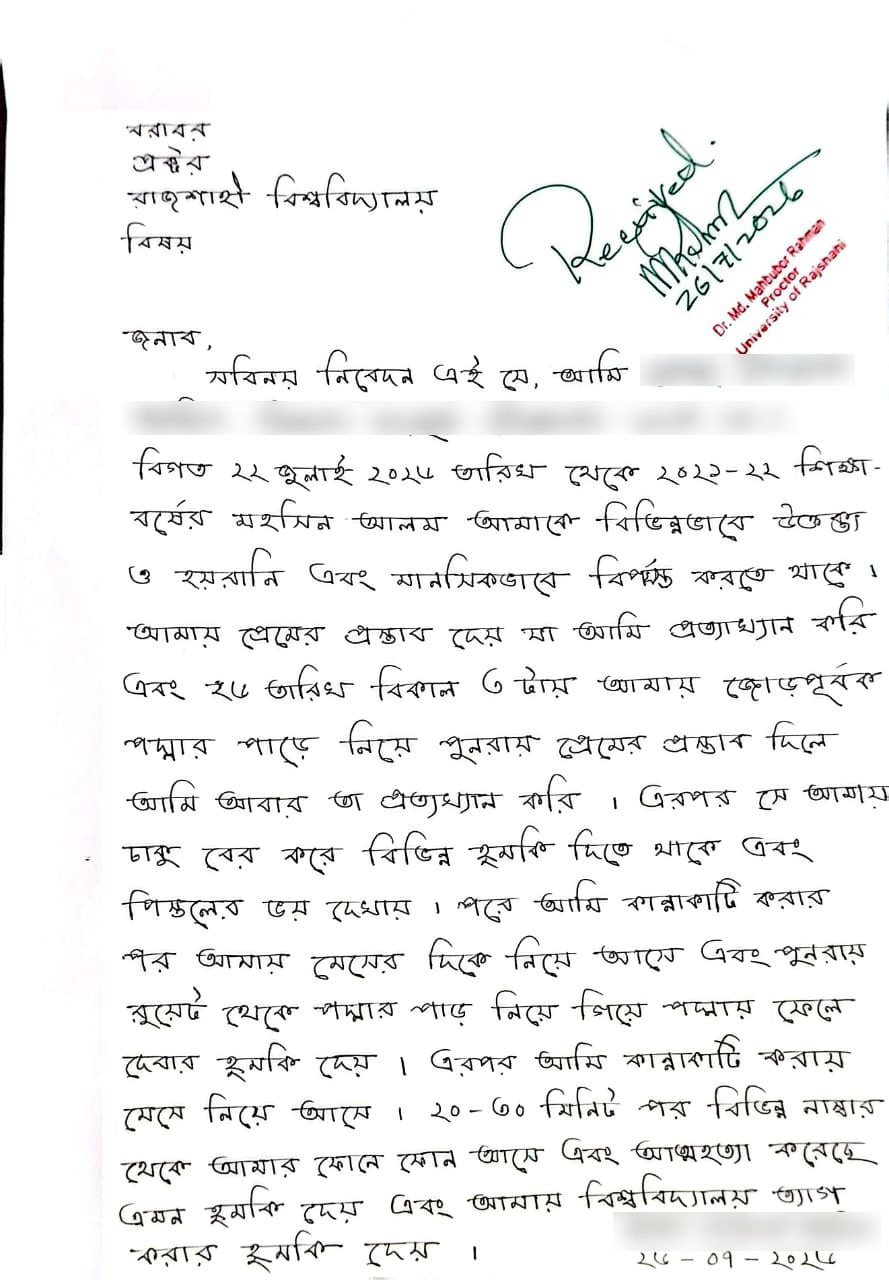 বরাবর
প্রক্টর
রাজশাহী বিশ্ববিদ্যালয়
বিষয়
Received.
26/7/2026
Dr. Md. Mahbubor Rahman
Proctor
University of Rajshahi
জনাব,
সবিনয় নিবেদন এই যে, আমি
বিগত ২২ জুলাই ২০২৬ তারিখ থেকে ২০২১-২২ শিক্ষা-
বর্ষের মহসিন আলম আমাকে বিভিন্নভাবে উত্তক্ত্য
ও হয়রানি এবং মানসিকভাবে বিপর্যস্ত করতে থাকে।
আমায় প্রেমের প্রস্তাব দেয় যা আমি প্রত্যাখ্যান করি
এবং ২৫ তারিখ বিকাল ৩ টায় আমায় জোড়পূর্বক
পদ্মার পাড়ে নিয়ে পুনরায় প্রেমের প্রস্তাব দিলে
আমি আবার তা প্রত্যখ্যান করি । এরপর সে আমায়
চাকু বের করে বিভিন্ন হুমকি দিতে থাকে এবং
পিস্তলের ভয় দেখায় । পরে আমি কান্নাকাটি করার
পর আমায় মেসের দিকে নিয়ে আসে এবং পুনরায়
রুয়েট থেকে পদ্মার পাড় নিয়ে গিয়ে পদ্মায় ফেলে
দেবার হুমকি দেয় । এরপর আমি কান্নাকাটি করায়
মেসে নিয়ে আসে । ২০-৩০ মিনিট পর বিভিন্ন নাম্বার
থেকে আমার ফোনে ফোন আসে এবং আত্মহত্যা করেছে
এমন হুমকি দেয় এবং আমায় বিশ্ববিদ্যালয় ত্যাগ
করার হুমকি দেয় ।
২৬-০৭-২০২৬